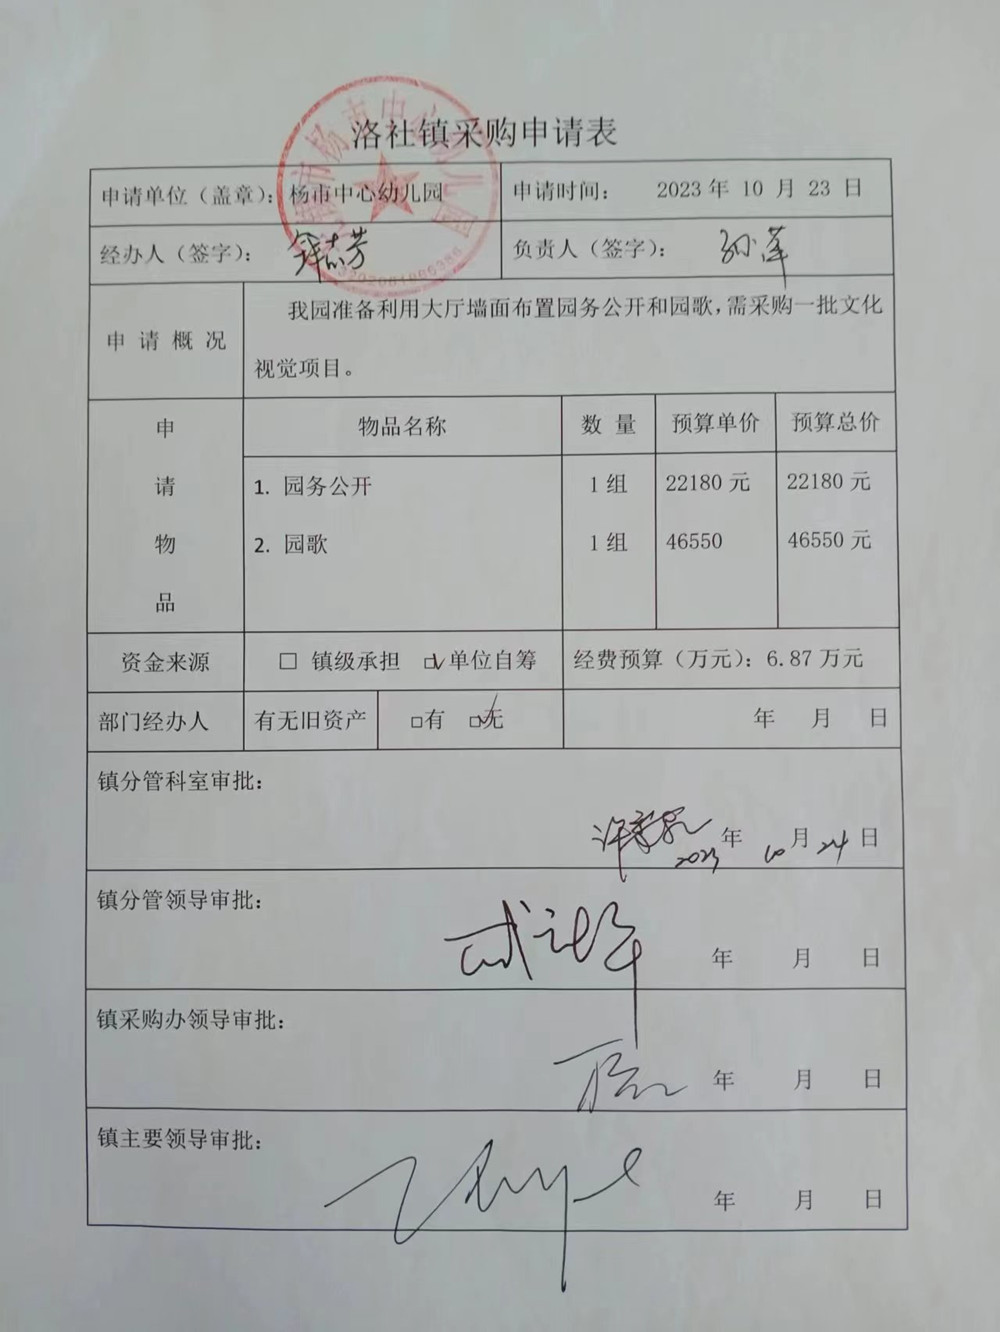 洛社镇采购申请表
申请单位（盖章）：杨市中心幼儿园 申请时间： 2023年 10 月 23 日
经办人（签字）： 负责人（签字）：
申请概况 我园准备利用大厅墙面布置园务公开和园歌，需采购一批文化
视觉项目。
申请物品 物品名称 数量 预算单价 预算总价
1. 园务公开 1组 22180元 22180元
2. 园歌 1组 46550 46550元
资金来源 □ 镇级承担 □√单位自筹 经费预算（万元）：6.87万元
部门经办人 有无旧资产 □有 □√无 年 月 日
镇分管科室审批：
2023年 10月24日
镇分管领导审批：
年 月 日
镇采购办领导审批：
年 月 日
镇主要领导审批：
年 月 日